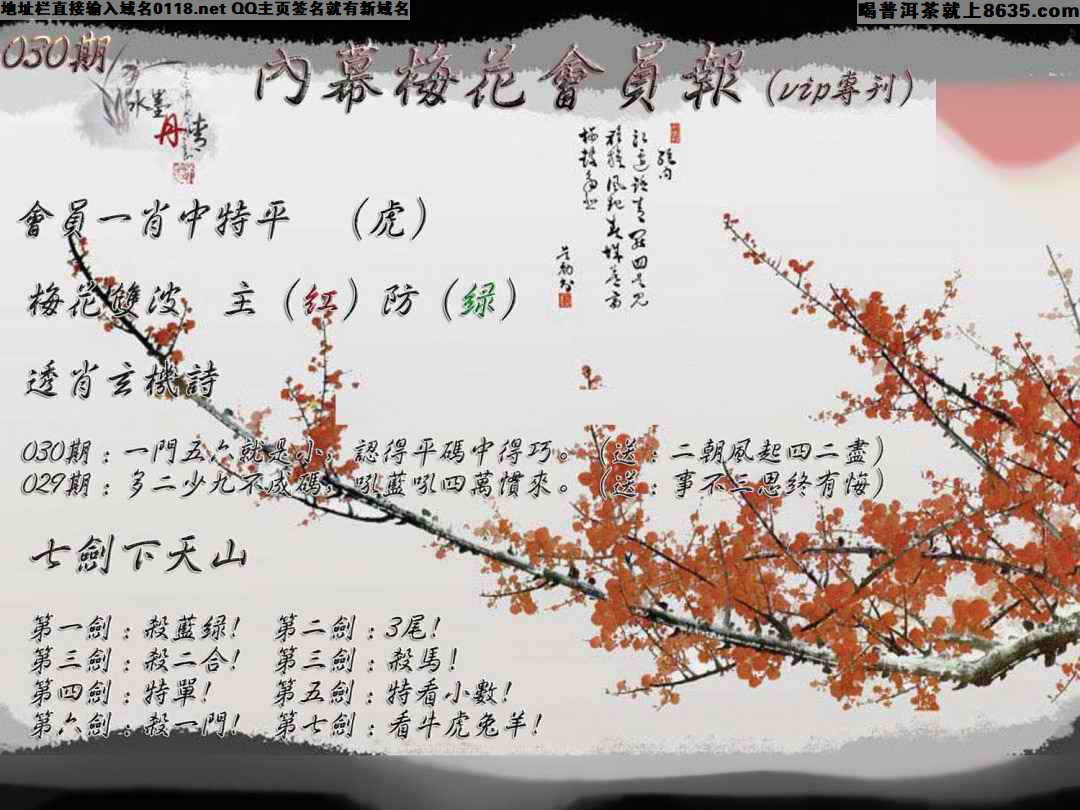 地址栏直接输入域名0118.net QQ主页签名就有新域名
喝普洱茶就上8635.com
030期
內幕梅花會員報（vip專刊）
水墨
丹青
會員一肖中特平 （虎）
梅花雙波 主（红）防（绿）
透肖玄機詩
030期：一門五六就是小，認得平碼中得巧。（送：二朝風起四二盡）
029期：多二少九不成碼，吼藍吼四萬慣來。（送：事不三思终有悔）
七劍下天山
第一劍：殺藍绿！ 第二劍：3尾！
第三劍：殺二合！ 第三劍：殺馬！
第四劍：特單！ 第五劍：特看小數！
第六劍：殺一門！ 第七劍：看牛虎兔羊！